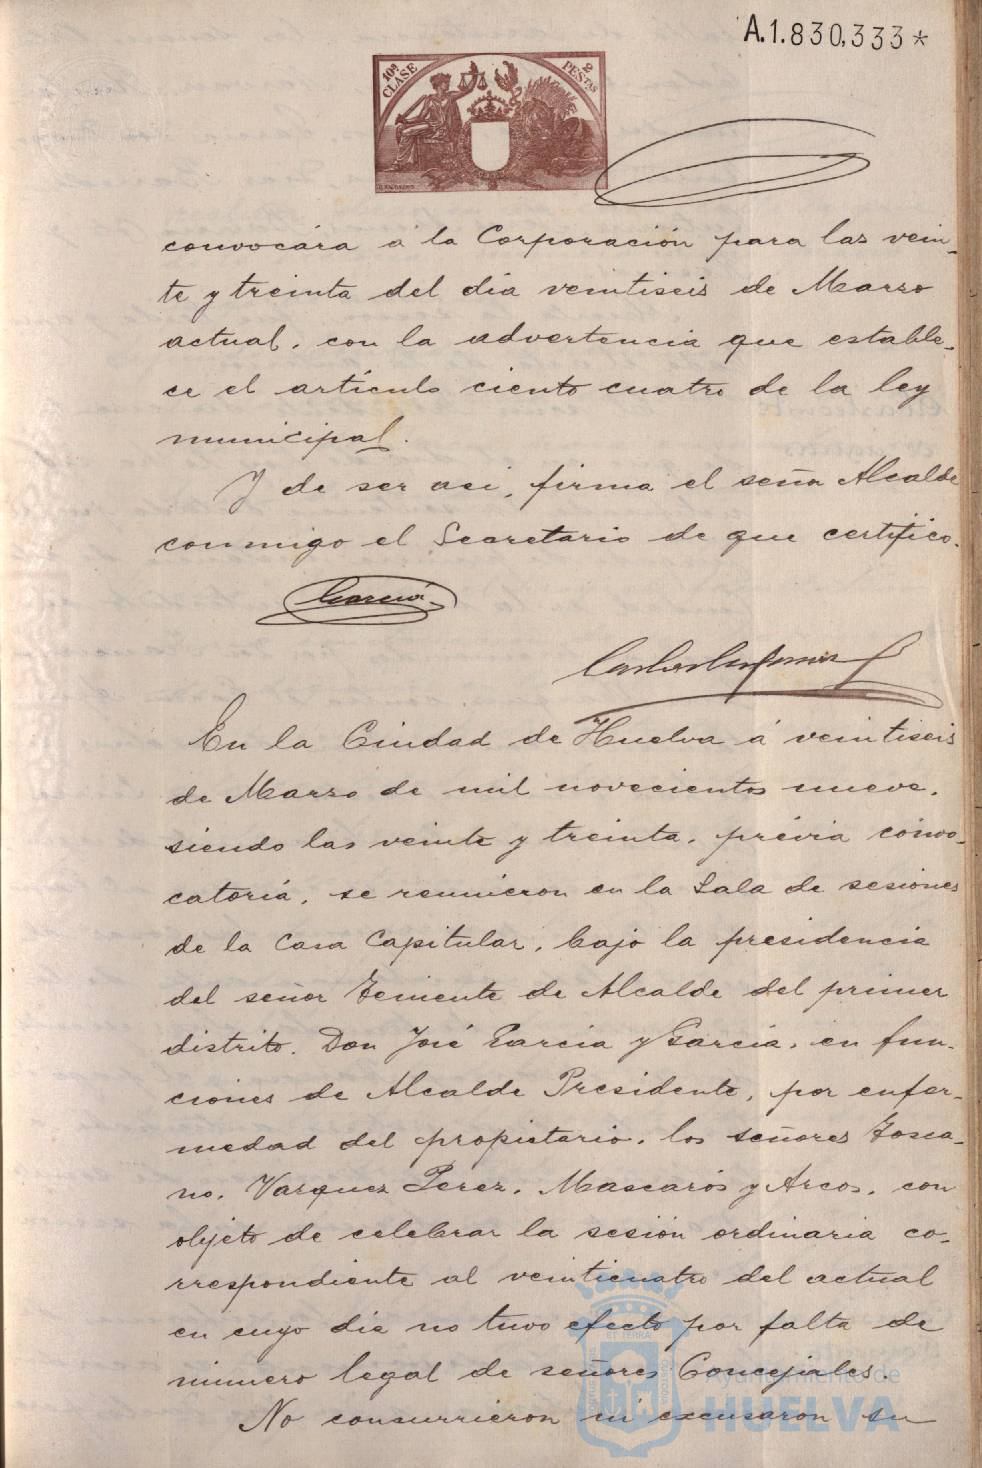 A.1.830,333*
10ª CLASE
2 PESTAS
convocára á la Corporación para las vein-
te y treinta del dia veintiseis de Marzo
actual, con la advertencia que estable-
ce el artículo ciento cuatro de la ley
municipal.
Y de ser asi, firma el señor Alcalde
conmigo el Secretario de que certifico.
García
En la Ciudad de Huelva á veintiseis
de Marzo de mil novecientos nueve,
siendo las veinte y treinta, prévia convo-
catoria, se reunieron en la Sala de sesiones
de la Casa Capitular, bajo la presidencia
del señor Teniente de Alcalde del primer
distrito, Don José García y García, en fun-
ciones de Alcalde Presidente, por enfer-
medad del propietario, los señores Tosca-
no, Vazquez Perez, Mascarós y Arcos, con
objeto de celebrar la sesión ordinaria co-
rrespondiente al veinticuatro del actual
en cuyo dia no tuvo efecto por falta de
número legal de señores Concejales.
No concurrieron ni excusaron su
Ayuntamiento de
HUELVA